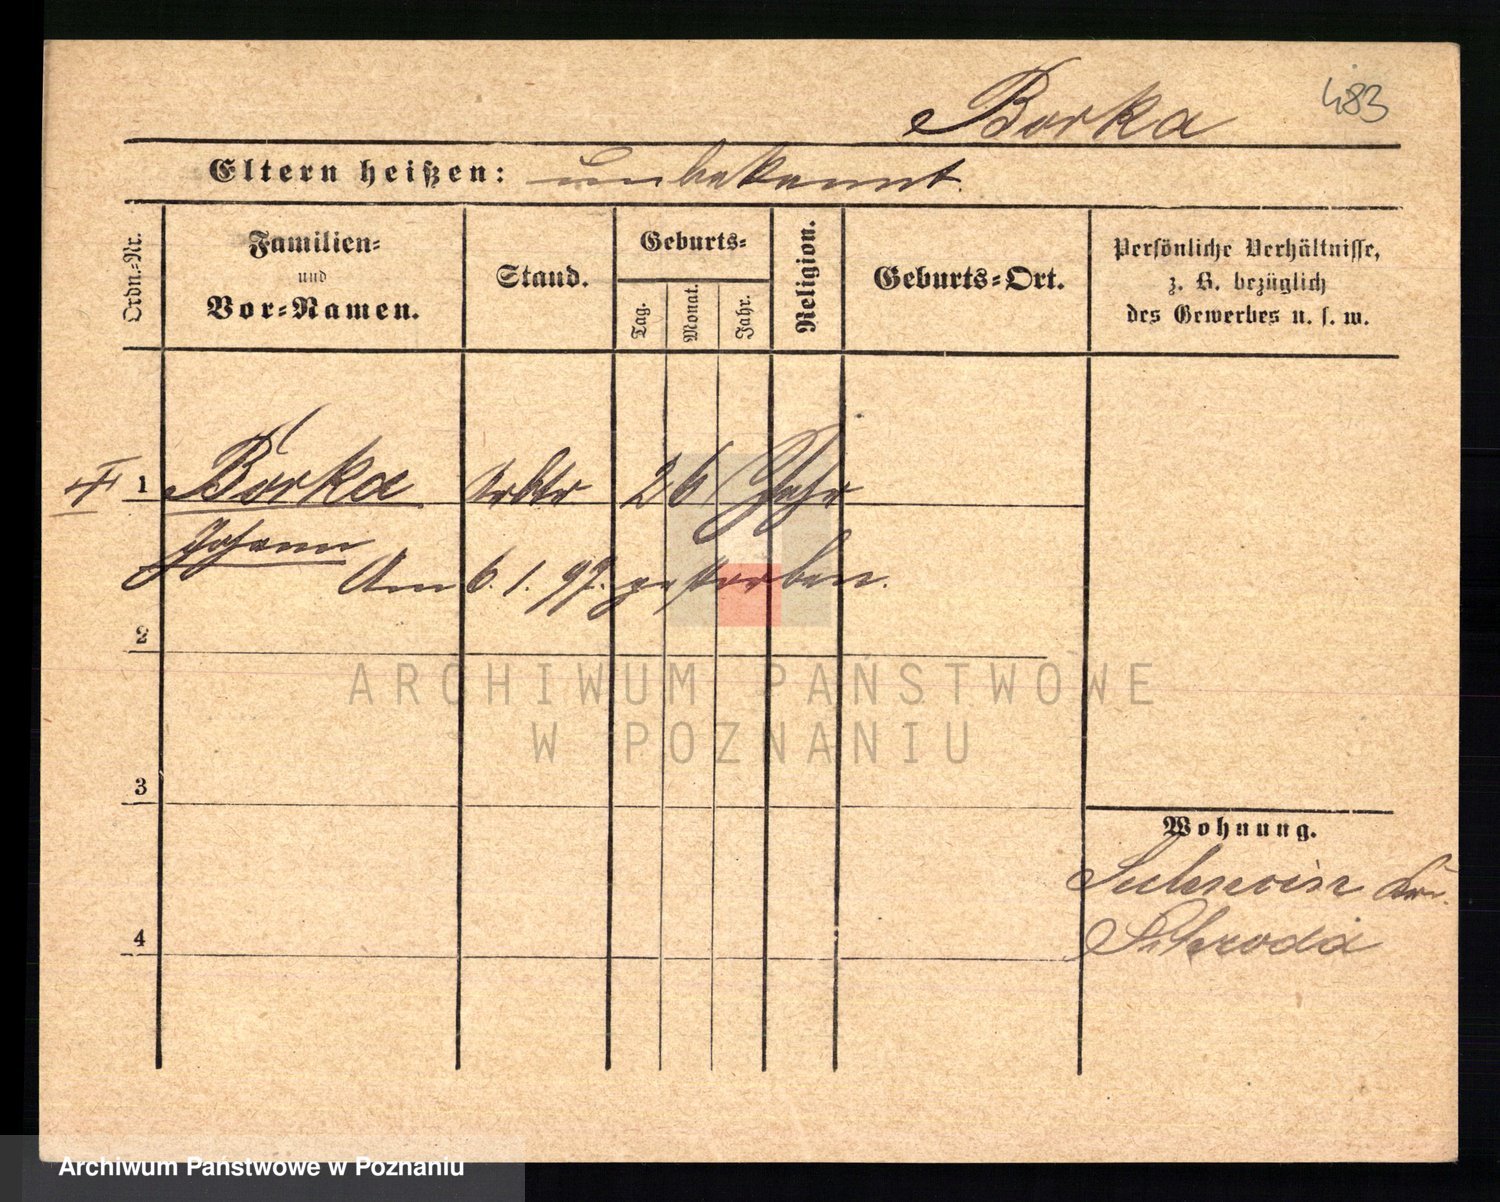 Borka
483
Eltern heißen: unbekannt.
Ordn.=Nr.
Familien=
und
Vor=Namen.
Stand.
Geburts=
Tag.
Monat.
Jahr.
Religion.
Geburts=Ort.
Persönliche Verhältnisse,
z. B. bezüglich
des Gewerbes u. s. w.
1 Borka Arbtr 26 Jahr
Johann
Am 6. 1. 97. gestorben.
2
3
4
Wohnung.
Schroda
ARCHIWUM PAŃSTWOWE
W POZNANIU
Archiwum Państwowe w Poznaniu